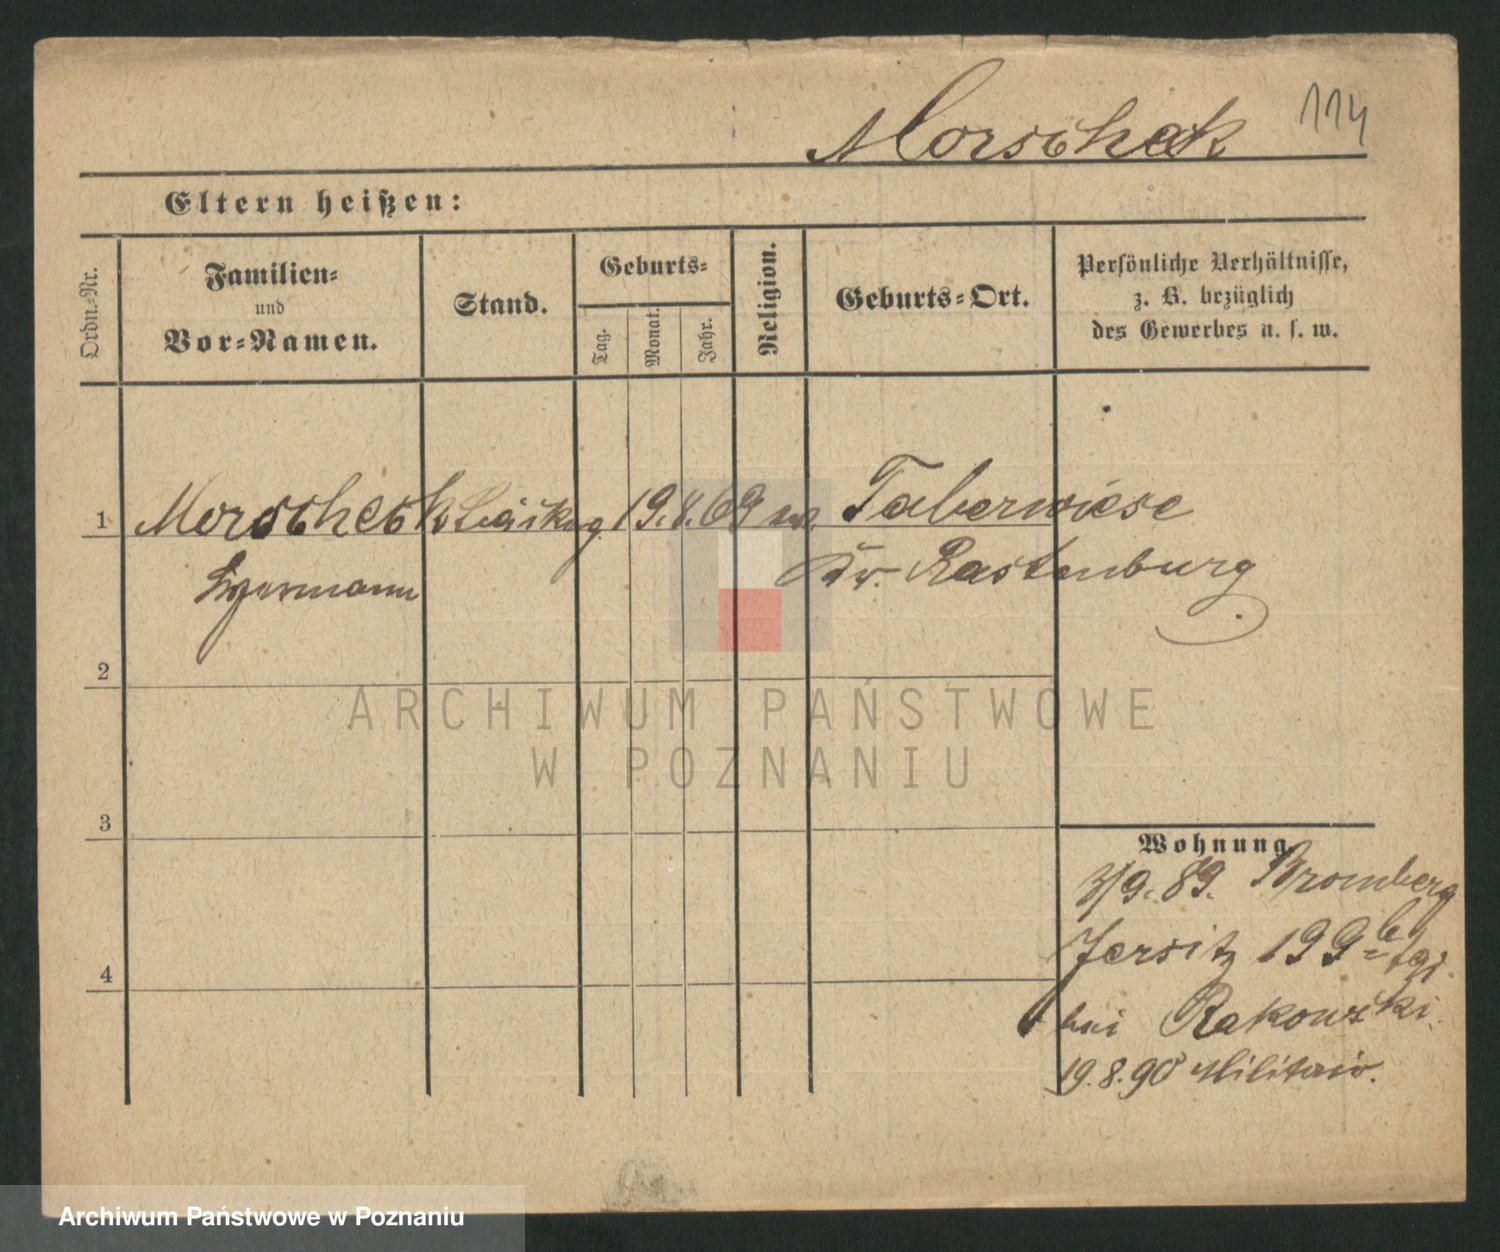 Morschek
114
Eltern heißen:
Ordn.-Nr.
Familien-
und
Vor-Namen.
Stand.
Geburts-
Tag.
Monat.
Jahr.
Religion.
Geburts-Ort.
Persönliche Verhältnisse,
z. B. bezüglich
des Gewerbes u. s. w.
1 Morscheck 19. 69 Taberwiese
Hermann Kr. Rastenburg
2
3
4
Wohnung
3/9. 89. Bromberg
Jersitz 199b
bei Rakowski.
19.8.90 Militair.
ARCHIWUM PAŃSTWOWE
W POZNANIU
Archiwum Państwowe w Poznaniu